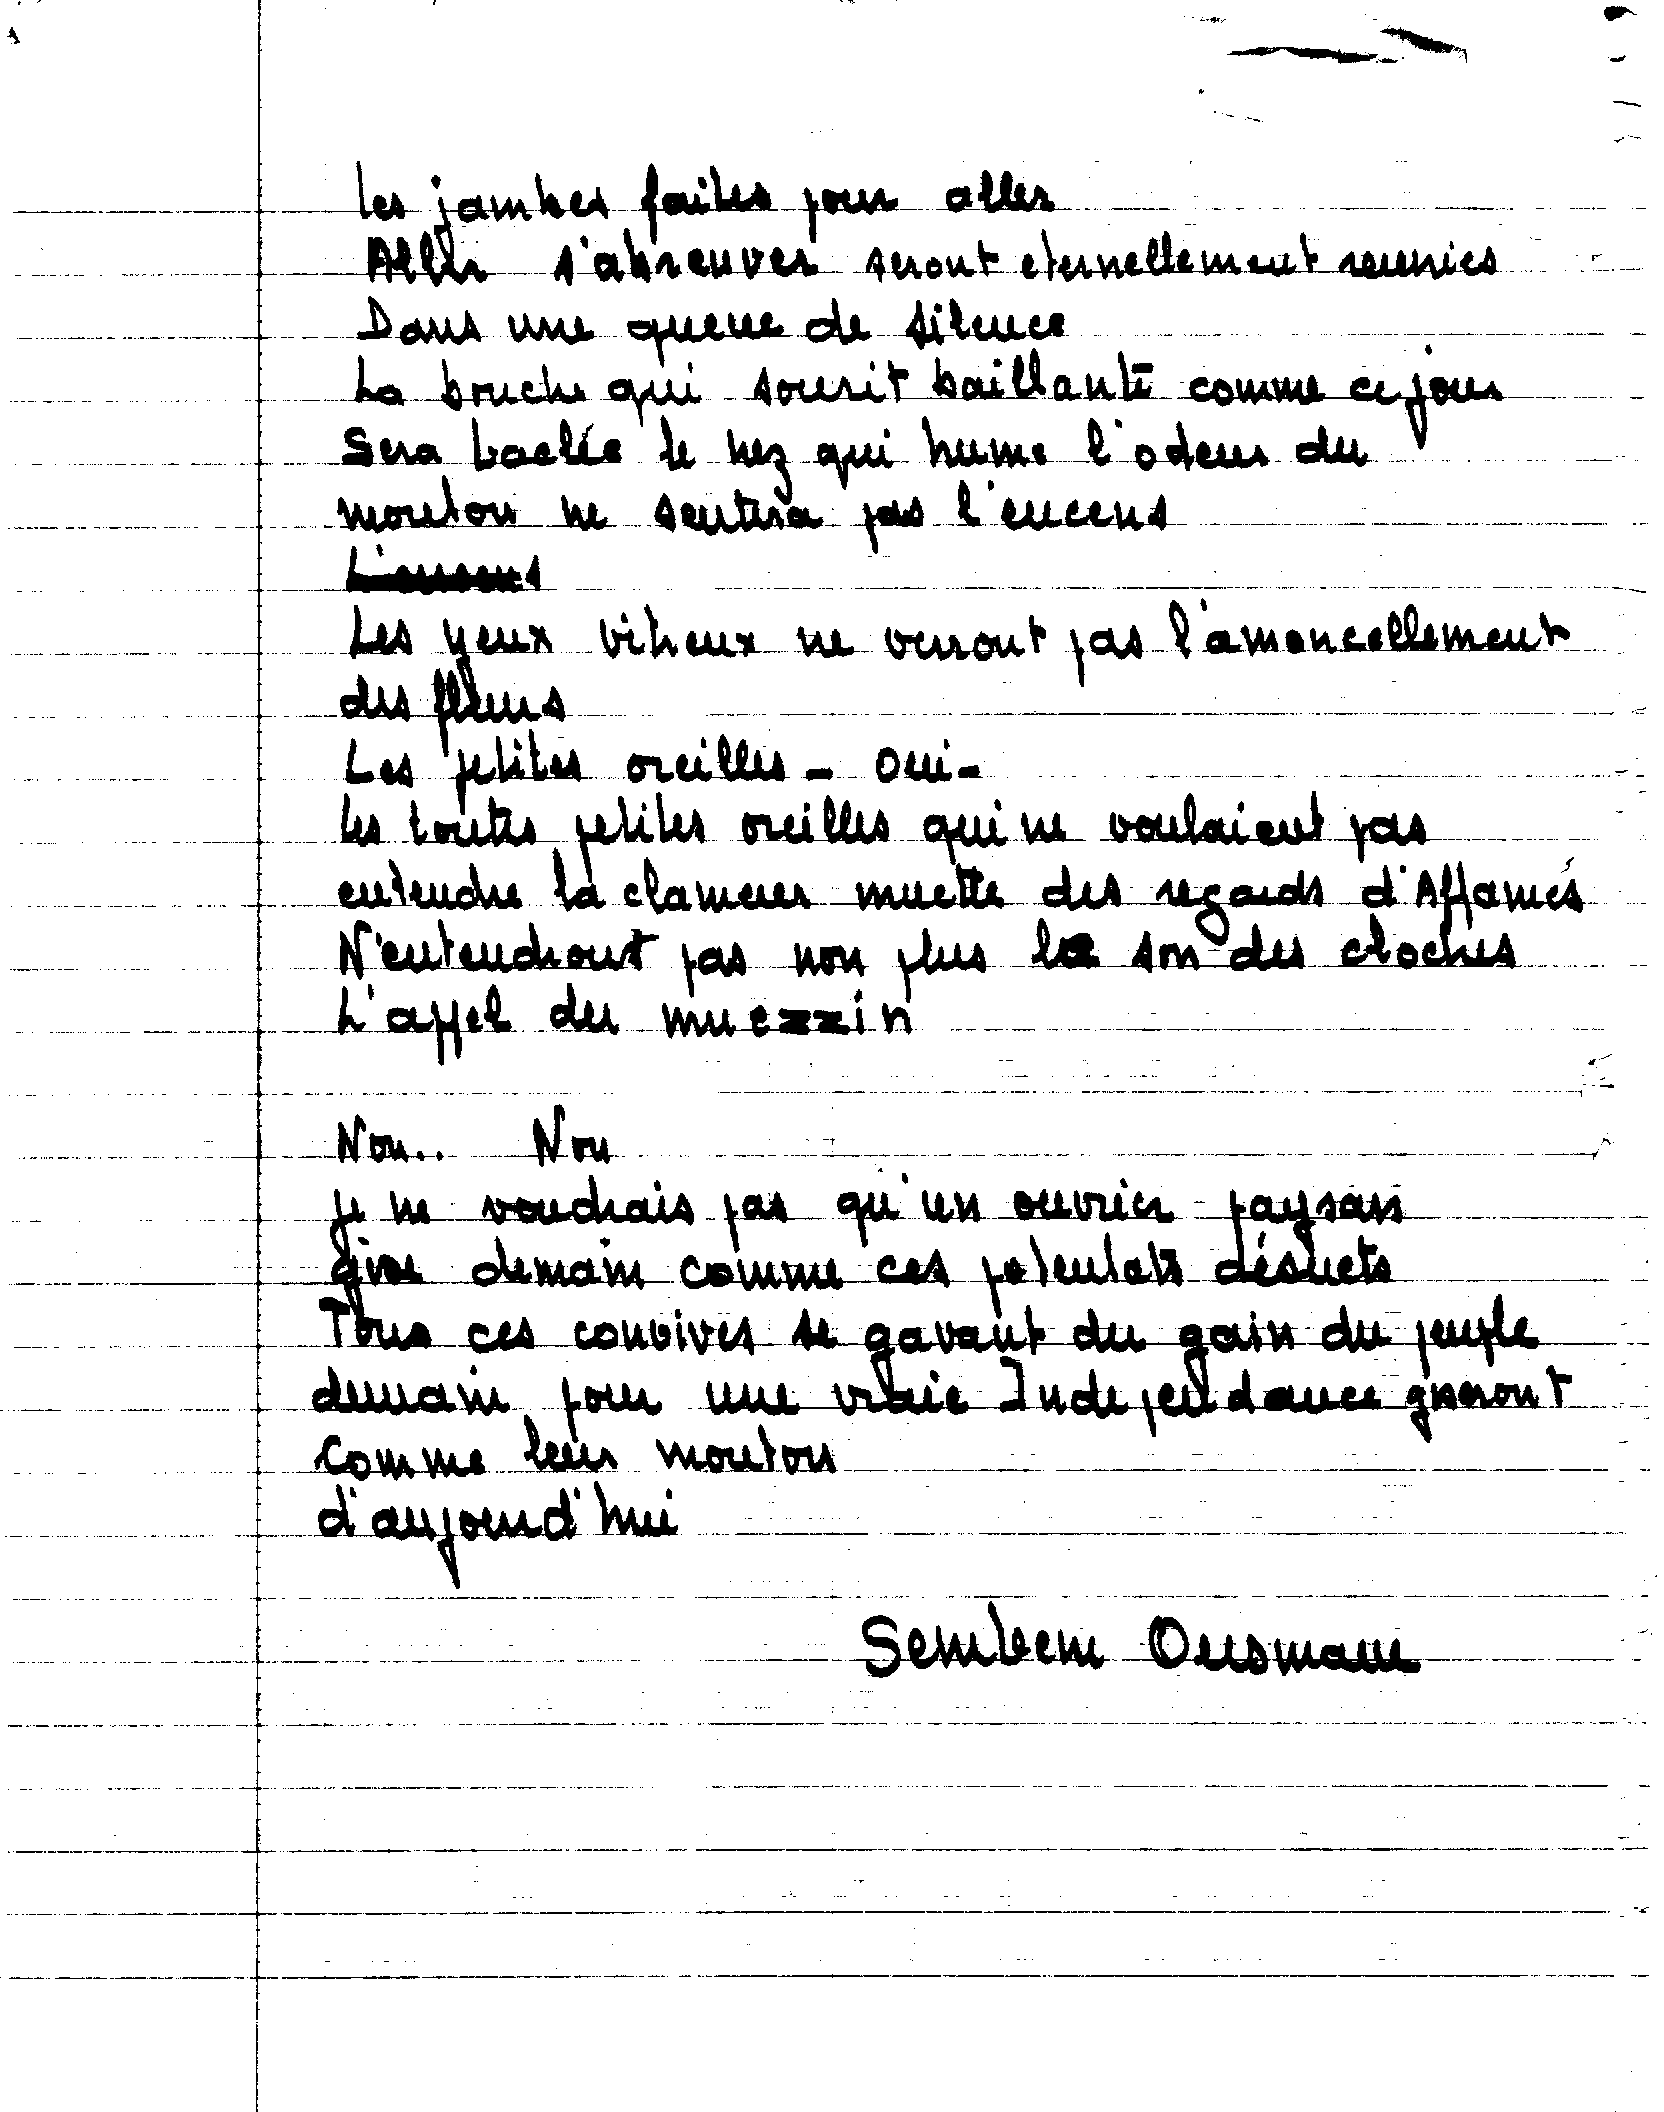 Les jambes faites pour aller
Aller s'abreuver seront eternellement reunies
Dans une queue de silence
La bouche qui sourit baillante comme ce jour
Sera baclée le nez qui hume l'odeur du
mouton ne sentira pas l'encens
L'encens
Les yeux vitreux ne verront pas l'amoncellement
des fleurs
Les petites oreilles - oui -
Les toutes petites oreilles qui ne voulaient pas
entendre la clameur muette des regards d'Affamés
N'entendront pas non plus le son des cloches
L'appel du muezzin
Non.. Non
je ne voudrais pas qu'un ouvrier paysan
gise demain comme ces potentats désuets
Tous ces convives se gavant du gain du peuple
demain pour une vraie Independance giseront
comme leur mouton
d'aujourd'hui
Sembene Ousmane